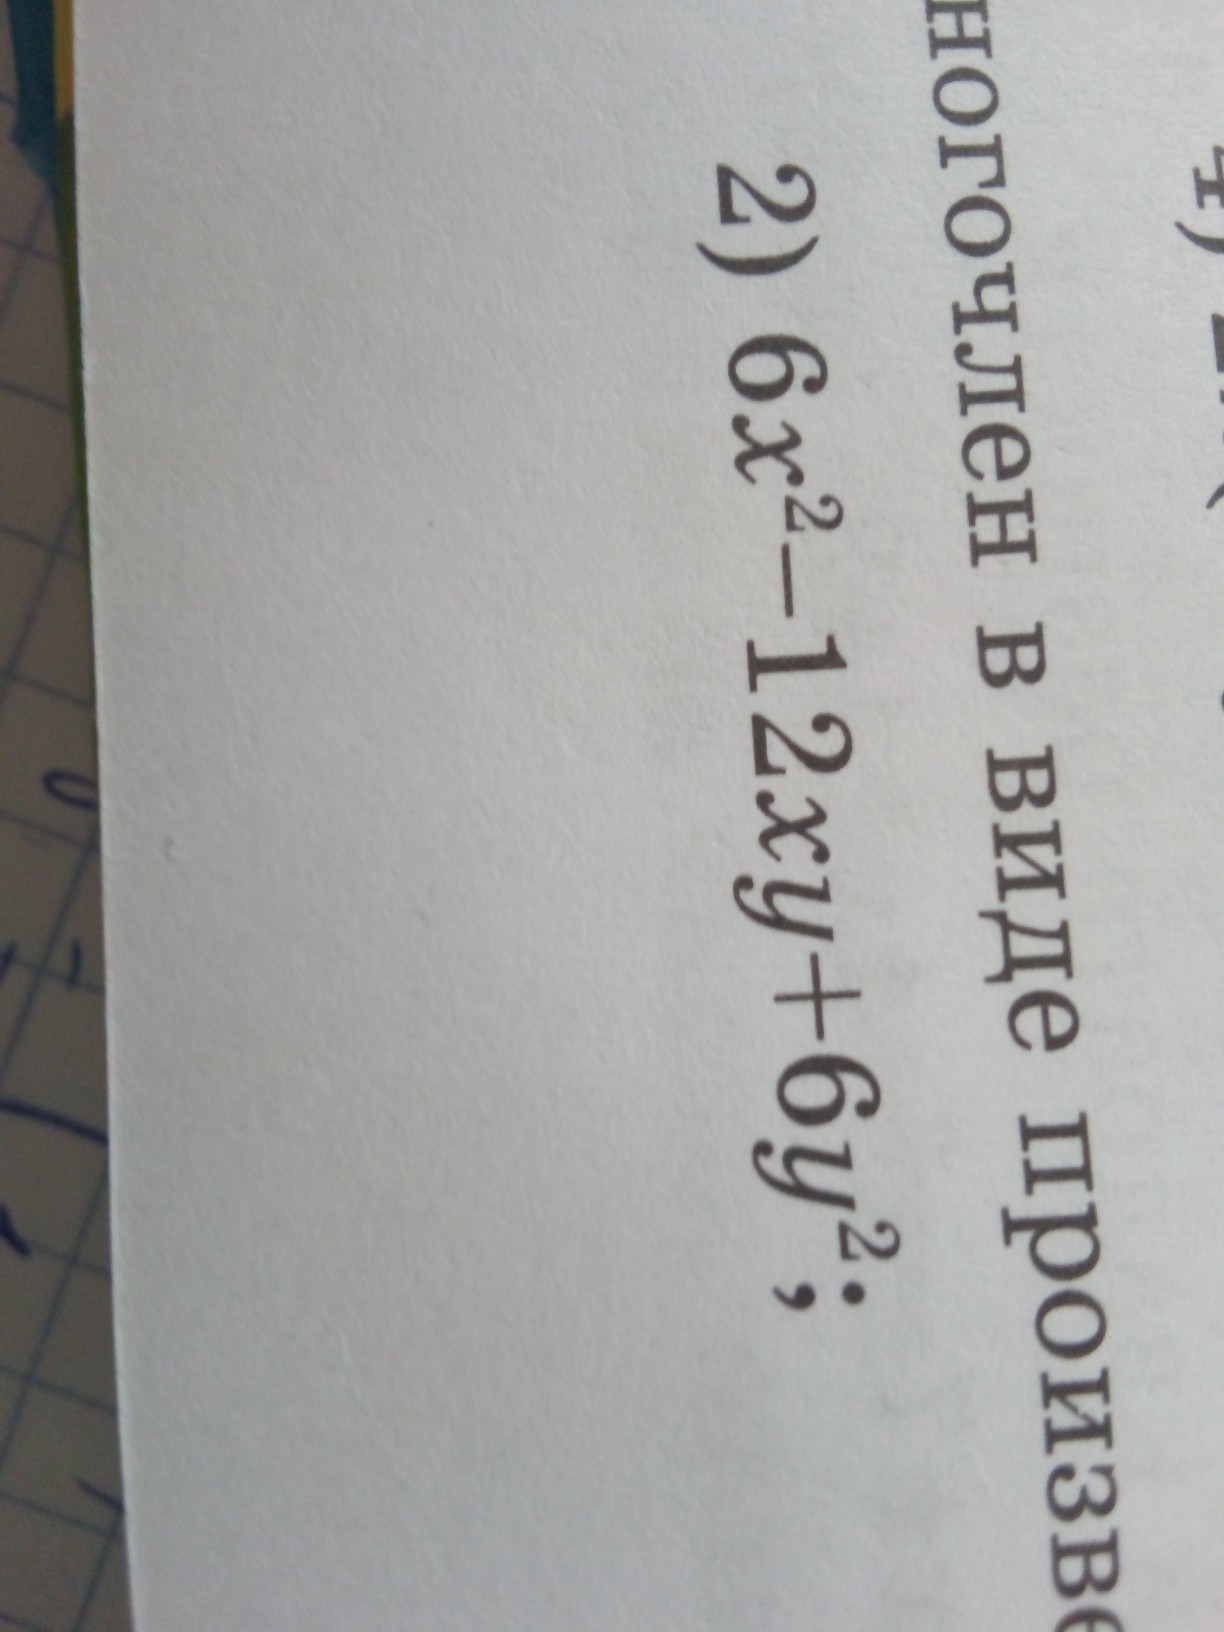 4)
ногочлен в виде произве
2) 6x²–12xy+6y²;